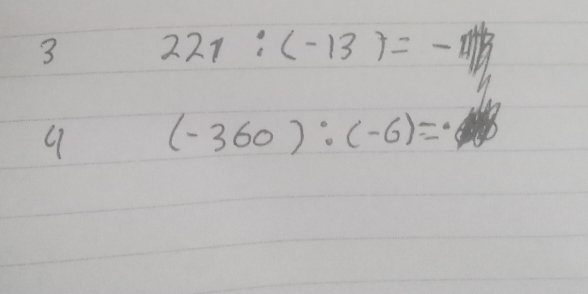 3 221 : (-13) = -
4 (-360) : (-6) =